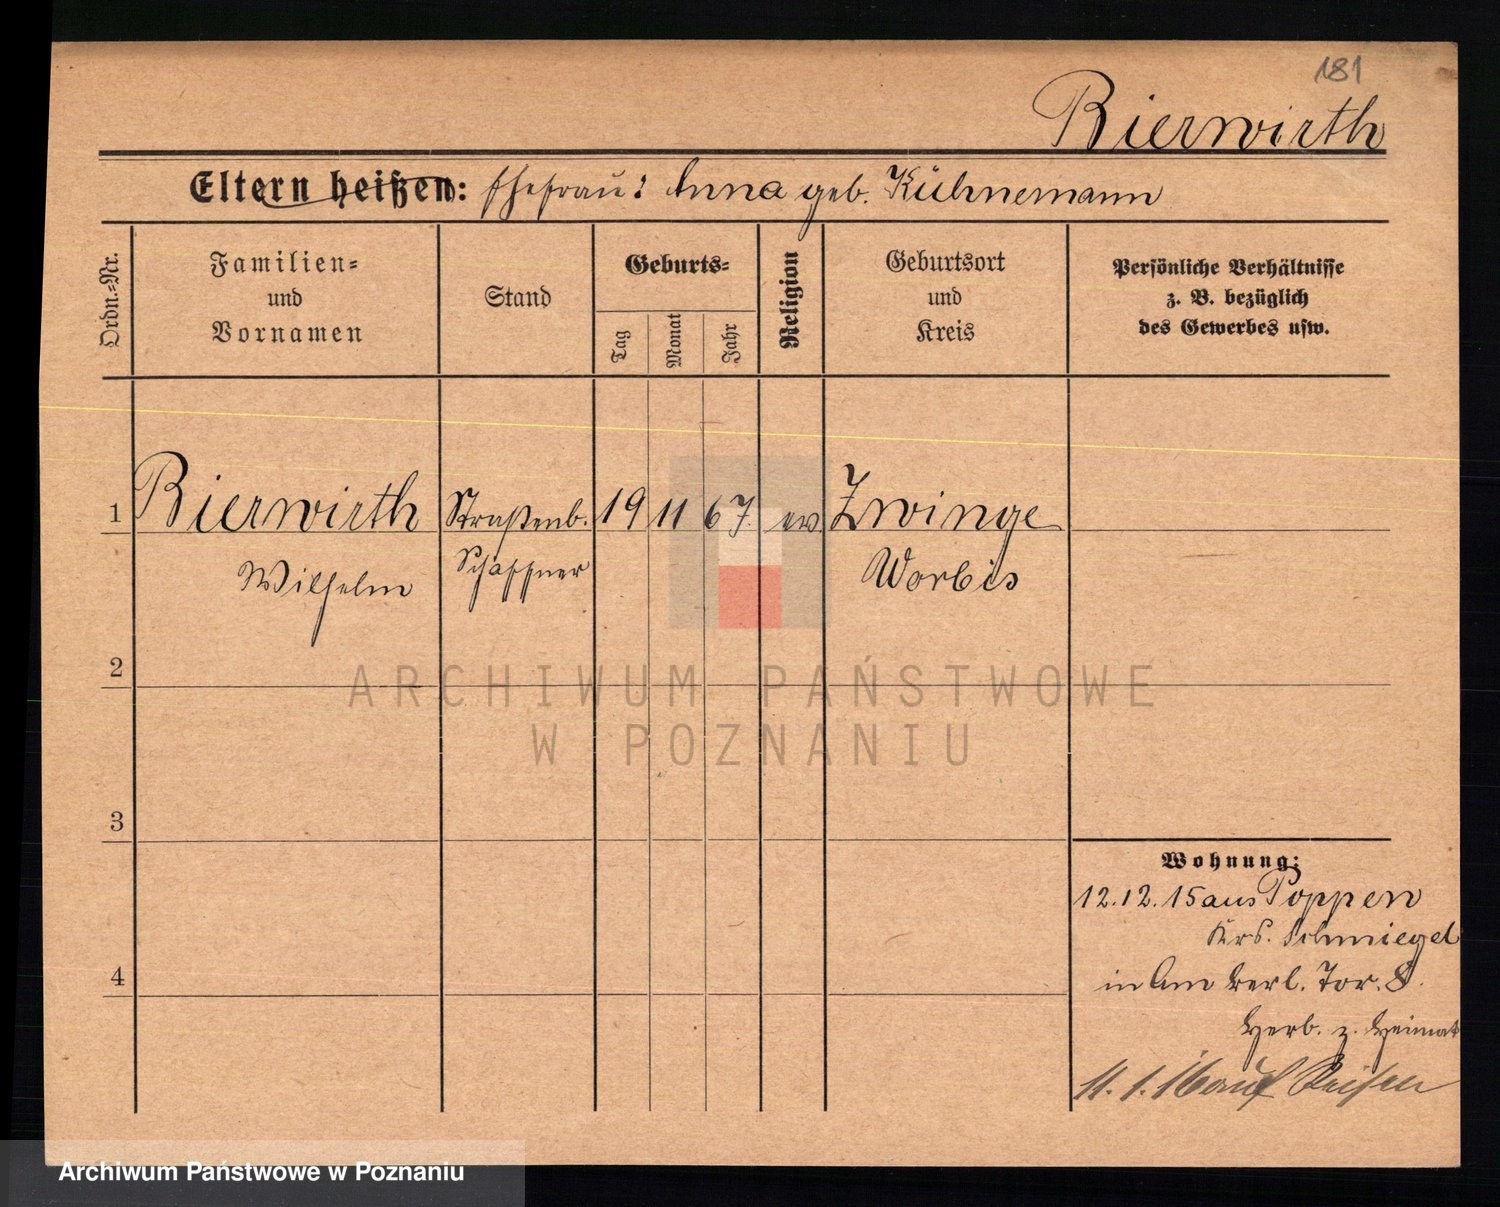 181
Bierwirth
Eltern heißen: Ehefrau: Anna geb. Kühnemann
Ordn.-Nr.
Familien-
und
Vornamen
Stand
Geburts-
Tag
Monat
Jahr
Religion
Geburtsort
und
Kreis
Persönliche Verhältnisse
z. B. bezüglich
des Gewerbes usw.
1 Bierwirth Straßenb. 19 11 67. ev. Zwinge
Wilhelm Schaffner Worbis
2
3
4
Wohnung:
12.12.15 aus Poppen
Krs. Schmiegel
in Am Berl. Tor. 8.
Herb. z. Heimat
11.1.16 auf Reisen
ARCHIWUM PAŃSTWOWE
W POZNANIU
Archiwum Państwowe w Poznaniu